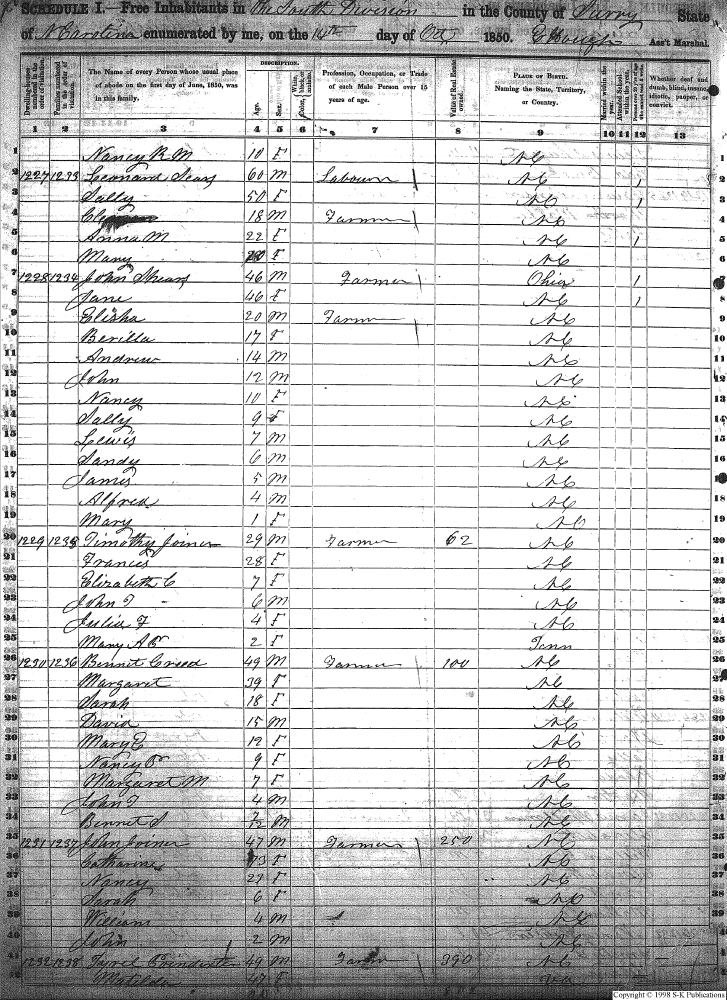 SCHEDULE I.—Free Inhabitants in The South Division in the County of Surry State
of N Carolina enumerated by me, on the 14th day of Oct, 1850. Ass't Marshal.
DESCRIPTION.
Dwelling-houses numbered in the order of visitation.
Families numbered in the order of visitation.
The Name of every Person whose usual place of abode on the first day of June, 1850, was in this family.
Age.
Sex.
Color, White, black, or mulatto.
Profession, Occupation, or Trade of each Male Person over 15 years of age.
Value of Real Estate owned.
PLACE OF BIRTH. Naming the State, Territory, or Country.
Married within the year.
Attended School within the year.
Whether deaf and dumb, blind, insane, idiotic, pauper, or convict.
1 2 3 4 5 6 7 8 9 10 11 12 13
1 Nancy R M 10 F NC 1
2 1227 1233 Leonard Sears 60 M Labourer NC 1 2
3 Sally 50 F NC 1 3
4 18 M Farmer NC 4
5 Anna M 22 F NC 1 5
6 Mary F NC 6
7 1228 1234 John Shears 46 M Farmer Ohio 1
8 Jane 46 F NC 1 8
9 Elisha 20 M Farmer NC 9
10 Berilla 17 F NC 10
11 Andrew 14 M NC 11
12 John 12 M NC 12
13 Nancy 10 F NC 13
14 Sally 9 F NC 14
15 Lewis 7 M NC 15
16 Sandy 6 M NC 16
17 James 5 M NC
18 Alfred 4 M NC 18
19 Mary 1 F NC 19
20 1229 1235 Timothy Joiner 29 M Farmer 62 NC 20
21 Frances 28 F NC 21
22 Elizabeth C 7 F NC 22
23 John F 6 M NC 23
24 Julia F 4 F NC 24
25 Mary A 2 F Tenn 25
26 1230 1236 Bennet Creed 49 M Farmer 100 NC 26
27 Margaret 39 F NC 27
28 Sarah 18 F NC 28
29 David 15 M NC 29
30 Mary E 12 F NC 30
31 Nancy 9 F NC 31
32 Margaret M 7 F NC 32
33 John F 4 M NC 33
34 Bennet S M NC 34
35 1231 1237 John Joiner 47 M Farmer 250 NC 35
36 Catharine F NC 36
37 Nancy 27 F NC 37
38 Sarah 6 F NC 38
39 William 4 M NC 39
40 John 2 M NC 40
41 1232 1238 49 M Farmer 390 NC 41
42 Matilda 47 F Va
Copyright © 1998 S-K Publications